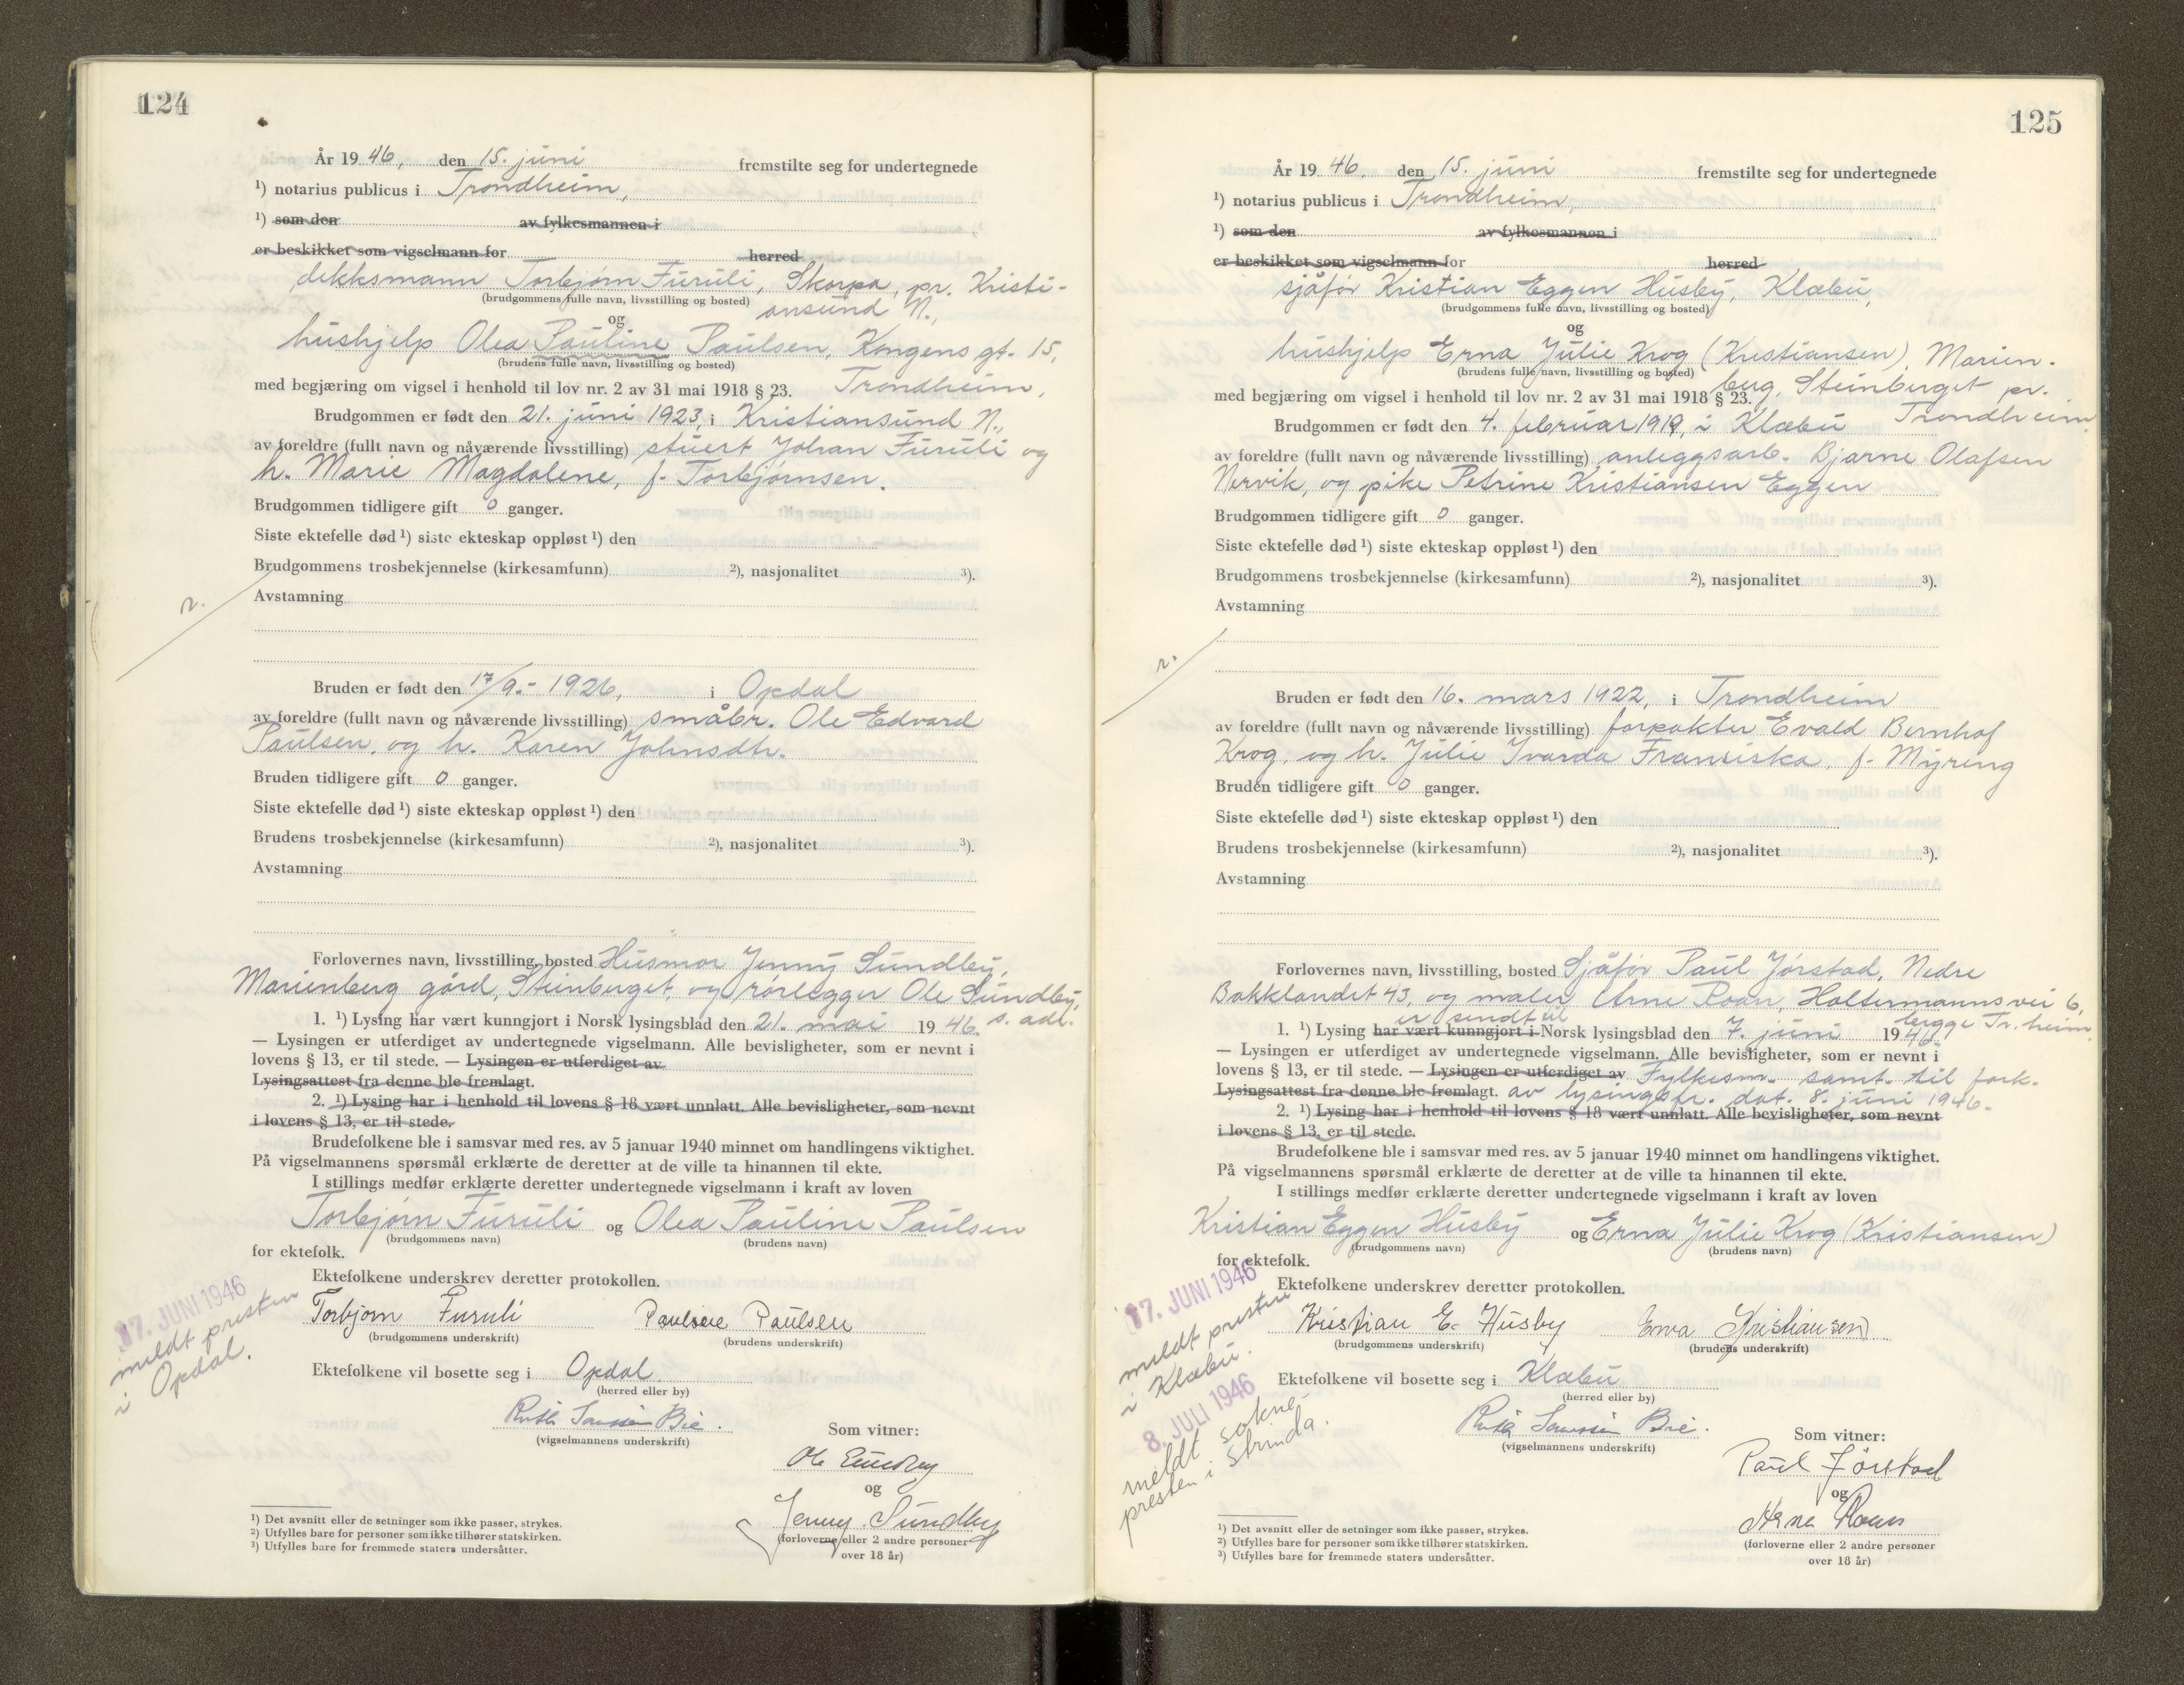 124
År 1946, den 15. juni fremstilte seg for undertegnede
¹) notarius publicus i Trondheim,
¹) som den av fylkesmannen i
er beskikket som vigselmann for herred
dekksmann Torbjørn Furuli, Skorpa, pr. Kristi-
ansund N.,
(brudgommens fulle navn, livsstilling og bosted)
og
hushjelp Olea Pauline Paulsen, Kongens gt. 15,
(brudens fulle navn, livsstilling og bosted)
med begjæring om vigsel i henhold til lov nr. 2 av 31 mai 1918 § 23. Trondheim,
Brudgommen er født den 21. juni 1923, i Kristiansund N.,
av foreldre (fullt navn og nåværende livsstilling) stuert Johan Furuli og
h. Marie Magdalene, f. Torbjørnsen.
Brudgommen tidligere gift 0 ganger.
Siste ektefelle død ¹) siste ekteskap oppløst ¹) den
Brudgommens trosbekjennelse (kirkesamfunn) ²), nasjonalitet ³).
Avstamning
Bruden er født den 17/9.- 1926, i Opdal
av foreldre (fullt navn og nåværende livsstilling) småbr. Ole Edvard
Paulsen, og h. Karen Johnsdtr.
Bruden tidligere gift 0 ganger.
Siste ektefelle død ¹) siste ekteskap oppløst ¹) den
Brudens trosbekjennelse (kirkesamfunn) ²), nasjonalitet ³).
Avstamning
Forlovernes navn, livsstilling, bosted Husmor Jenny Sundby,
Marienberg gård, Steinberget, og rørlegger Ole Sundby,
s. adr.
1. ¹) Lysing har vært kunngjort i Norsk lysingsblad den 21. mai 1946.
— Lysingen er utferdiget av undertegnede vigselmann. Alle bevisligheter, som er nevnt i
lovens § 13, er til stede. — Lysingen er utferdiget av
Lysingsattest fra denne ble fremlagt.
2. ¹) Lysing har i henhold til lovens § 18 vært unnlatt. Alle bevisligheter, som nevnt
i lovens § 13, er til stede.
Brudefolkene ble i samsvar med res. av 5 januar 1940 minnet om handlingens viktighet.
På vigselmannens spørsmål erklærte de deretter at de ville ta hinannen til ekte.
I stillings medfør erklærte deretter undertegnede vigselmann i kraft av loven
Torbjørn Furuli og Olea Pauline Paulsen
(brudgommens navn) (brudens navn)
for ektefolk.
Ektefolkene underskrev deretter protokollen.
Torbjørn Furuli Pauline Paulsen
(brudgommens underskrift) (brudens underskrift)
17. JUNI 1946
meldt presten
i Opdal.
Ektefolkene vil bosette seg i Opdal
(herred eller by)
(vigselmannens underskrift)
Som vitner:
Ole Sundby
og
Jenny Sundby
(forloverne eller 2 andre personer
over 18 år)
¹) Det avsnitt eller de setninger som ikke passer, strykes.
²) Utfylles bare for personer som ikke tilhører statskirken.
³) Utfylles bare for fremmede staters undersåtter.
125
År 1946. den 15. juni fremstilte seg for undertegnede
¹) notarius publicus i Trondheim,
¹) som den av fylkesmannen i
er beskikket som vigselmann for herred
sjåfør Kristian Eggen Husby, Klæbu,
(brudgommens fulle navn, livsstilling og bosted)
og
hushjelp Erna Julie Krog (Kristiansen), Marien-
(brudens fulle navn, livsstilling og bosted)
berg, Steinberget pr.
med begjæring om vigsel i henhold til lov nr. 2 av 31 mai 1918 § 23.
Trondheim.
Brudgommen er født den 4. februar 1919, i Klæbu
av foreldre (fullt navn og nåværende livsstilling) anleggsarb. Bjarne Olafsen
Nervik, og pike Petrine Kristiansen Eggen
Brudgommen tidligere gift 0 ganger.
Siste ektefelle død ¹) siste ekteskap oppløst ¹) den
Brudgommens trosbekjennelse (kirkesamfunn) ²), nasjonalitet ³).
Avstamning
Bruden er født den 16. mars 1922, i Trondheim
av foreldre (fullt navn og nåværende livsstilling) forpakter Evald Bernhof
Krog, og h. Julie Ivarda Franziska, f. Myreng
Bruden tidligere gift 0 ganger.
Siste ektefelle død ¹) siste ekteskap oppløst ¹) den
Brudens trosbekjennelse (kirkesamfunn) ²), nasjonalitet ³).
Avstamning
Forlovernes navn, livsstilling, bosted Sjåfør Paul Jørstad, Nedre
Bakklandet 43, og maler Arne Roan, Holtermanns vei 6,
begge Tr.heim.
er sendt til
1. ¹) Lysing har vært kunngjort i Norsk lysingsblad den 7. juni 1946.
— Lysingen er utferdiget av undertegnede vigselmann. Alle bevisligheter, som er nevnt i
lovens § 13, er til stede. — Lysingen er utferdiget av Fylkesm. samt. til fork.
Lysingsattest fra denne ble fremlagt. av lysingsfr. dat. 8. juni 1946.
2. ¹) Lysing har i henhold til lovens § 18 vært unnlatt. Alle bevisligheter, som nevnt
i lovens § 13, er til stede.
Brudefolkene ble i samsvar med res. av 5 januar 1940 minnet om handlingens viktighet.
På vigselmannens spørsmål erklærte de deretter at de ville ta hinannen til ekte.
I stillings medfør erklærte deretter undertegnede vigselmann i kraft av loven
Kristian Eggen Husby og Erna Julie Krog (Kristiansen)
(brudgommens navn) (brudens navn)
for ektefolk.
Ektefolkene underskrev deretter protokollen.
Kristian E. Husby Erna Kristiansen
(brudgommens underskrift) (brudens underskrift)
17. JUNI 1946
meldt presten
i Klæbu.
8. JULI 1946
meldt sokne-
presten i Strinda.
Ektefolkene vil bosette seg i Klæbu
(herred eller by)
(vigselmannens underskrift)
Som vitner:
Paul Jørstad
og
Arne Roan
(forloverne eller 2 andre personer
over 18 år)
¹) Det avsnitt eller de setninger som ikke passer, strykes.
²) Utfylles bare for personer som ikke tilhører statskirken.
³) Utfylles bare for fremmede staters undersåtter.